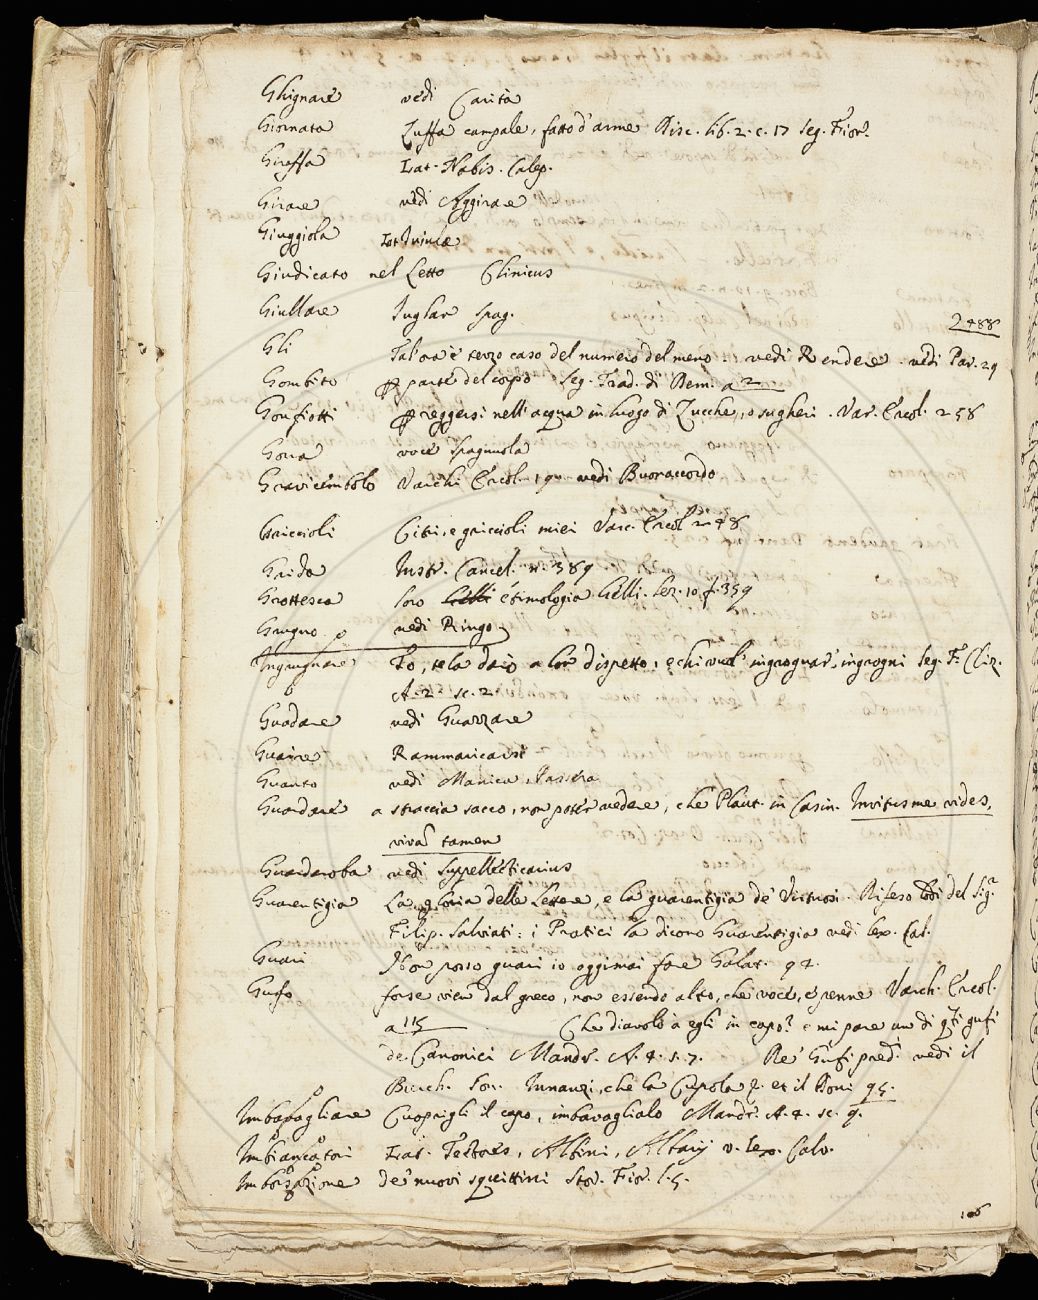 Ghignare vedi Carità
Giornata Zuffa campale, fatto d'arme Disc. lib. 2. c. 17 Seg. Fior.
Giraffa Lat. Nabis. Calep.
Girare vedi Aggirare
Giuggiola Lat.
Giudicato nel Letto Clinicus
Giullare Juglar spag.
2488
Gli Tal'ora è terzo caso del numero del meno: vedi Rendere. vedi Par. 29
Gombito parte del corpo Seg. Trad. di Dem. a 2
Gonfiotti reggersi nell'acqua in luogo di Zucche, o sugheri. Var. Ercol. 258
Gorra voce spagnuola
Gravicembolo Varchi Ercol. vedi Buonaccordo
Griccioli Gibi, e griccioli miei Varc. Ercol 248
Grida Instr. Cancel. n. 389
Grottesca loro etimologia Gelli. Lez. 10. f. 359
Grugno vedi Ringo
Ingrugnare To, te la darò a lor dispetto, e chi vuol ingrognar, ingrogni Seg. F. Cliz.
A. 2. sc. 2.
Guadare vedi Guazzare
Guaire Rammaricarsi
Guanto vedi Manica,
Guardare a straccia sacco, non poter vedere, che Plaut. in Casin. Invitus me vides,
vivam tamen
Guardaroba vedi Suppellecticarius
Guarentigia La gloria delle Lettere, e la guarentigia de' Virtuosi. del Sig.r
Filip. Salviati: i Pratici la dicono Guarentigia vedi Lex. Cal.
Guari Non posso guari io oggimai fare Galat. 92.
Gufo forse vien dal greco, non essendo altro, che voce, e penne Varch. Ercol.
a 115 Che diavolo à egli in capo? e mi pare un di q.ti gufi
de Canonici Mandr. A. 4. s. 7. Re' Gufi pred. vedi il
Burch. Son. Innanzi, che la Cupola et il Doni 95.
Imbavagliare Cuoprigli il capo, imbavaglialo Mandr. A. 4. sc. 9.
Imbiancatori Lat. Tectores, Albini, Albarij v. Lex. Calv.
Imborsazione de' nuovi squittini Stor. Fior. l. 5.
106